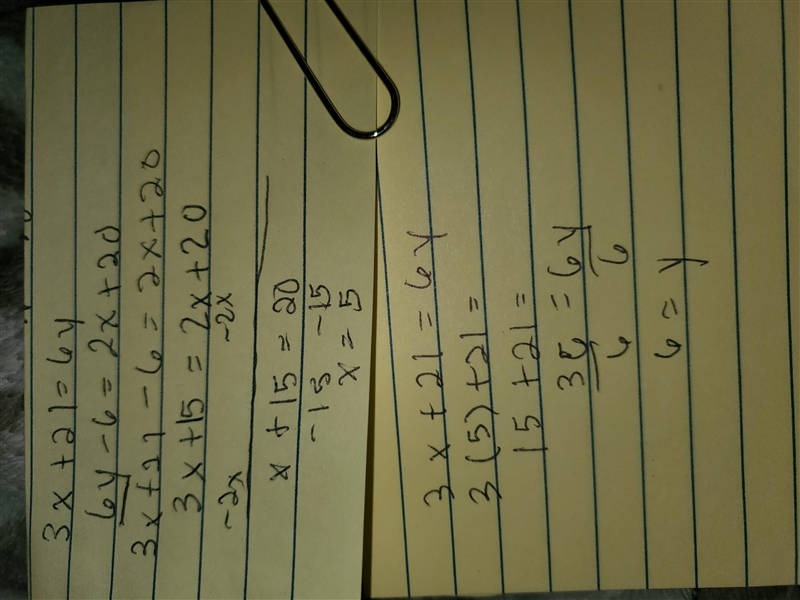 3x+21=6y
6y-6=2x+20
3x+21-6=2x+20
3x+15=2x+20
-2x -2x
x+15=20
-15 -15
x=5
3x+21=6y
3(5)+21=
15+21=
36=6y
6 6
6=y